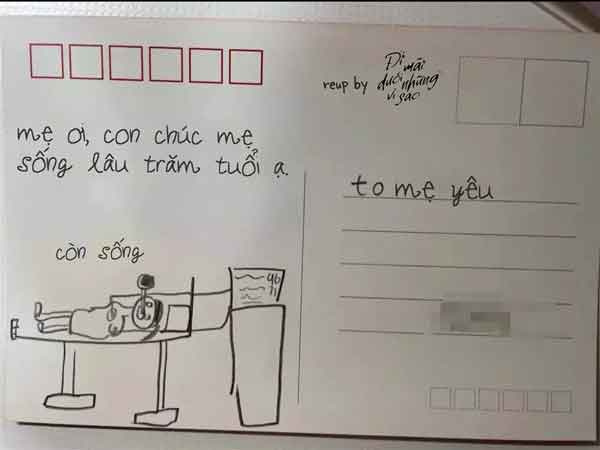 reup by Đi mãi dưới những vì sao
mẹ ơi, con chúc mẹ
sống lâu trăm tuổi ạ.
to mẹ yêu
còn sống